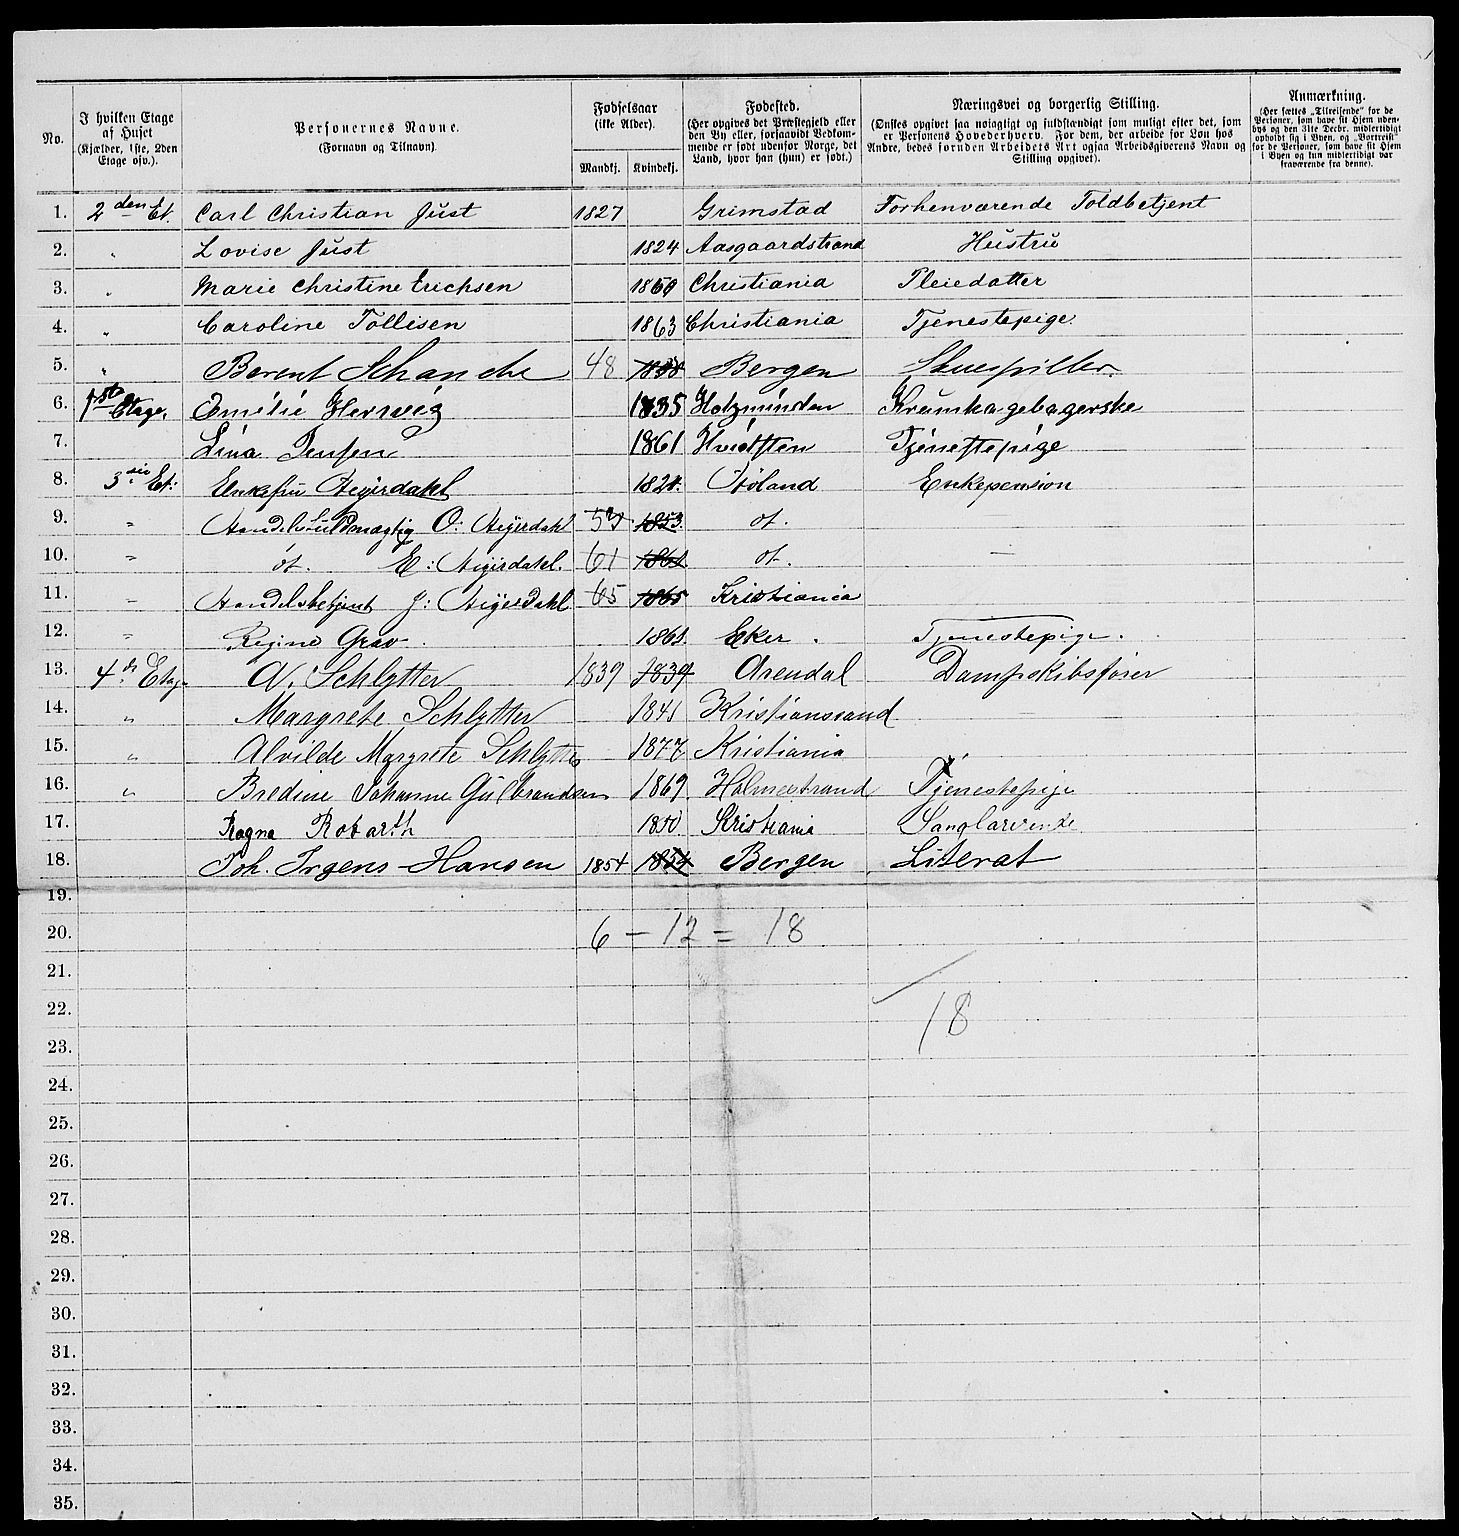 No. | I hvilken Etage af Huset (Kjælder, 1ste, 2den Etage osv.). | Personernes Navne. (Fornavn og Tilnavn). | Fødselsaar (ikke Alder). Mandkj. | Kvindekj. | Fødested. (Her opgives det Præstegjeld eller den By eller, forsaavidt Vedkommende er født udenfor Norge, det Land, hvor han (hun) er født.) | Næringsvei og borgerlig Stilling. (Ønskes opgivet saa nøiagtigt og fuldstændigt som muligt efter det, som er Personens Hovederhverv. For dem, der arbeide for Løn hos Andre, bedes foruden Arbeidets Art ogsaa Arbeidsgiverens Navn og Stilling opgivet). | Anmærkning. (Her sættes „Tilreisende“ for de Personer, som have sit Hjem udenbys og den 31te Decbr. midlertidigt opholdt sig i Byen, og „Bortreist“ for de Personer, som have sit Hjem i Byen og kun midlertidigt var fraværende fra denne).
1. 2den Et. Carl Christian Just 1827 Grimstad Forhenværende Toldbetjent
2. " Lovise Just 1824 Aasgaardstrand Hustru
3. " Marie Christine Erichsen Christiania Pleiedatter
4. " Caroline Tollisen 1863 Christiania Tjenestepige.
5. " Berent Schanche 48 Bergen Skuespiller.
6. 1st Etage. Emélié Herwig 1835 Holzminden Krumkagebagerske
7. Lina Jensen 1861 Hvidsten Tjenestepige
8. 3die Et: Enkefru Aegirdahl Enkepension
9. " Handelsfuldmægtig O: Aegirdahl 53 1853 ot.
10. " ot. E: Aegirdahl. 61 1861 ot. —
11. " Handelsbetjent J: Aegirdahl 65 1865 Kristiania
12. " Regine Grav Eker. Tjenestepige.
13. 4de Etage Schlytter 1839 1839 Arendal Dampskibsfører
14. " Margrete Schlytter 1841 Kristianssand —
15. " Alvilde Margrete Schlytter 1877 Kristiania
16. " Bredine Johanne Gulbrandsen 1869 Holmestrand Tjenestepige
17. Ragna Robarth 1850 Kristiania Sanglærerinde
18. Joh. Irgens-Hansen 1854 1854 Bergen Literat
19.
20. 6 — 12 = 18
21.
22. 18
23.
24.
25.
26.
27.
28.
29.
30.
31.
32.
33.
34.
35.